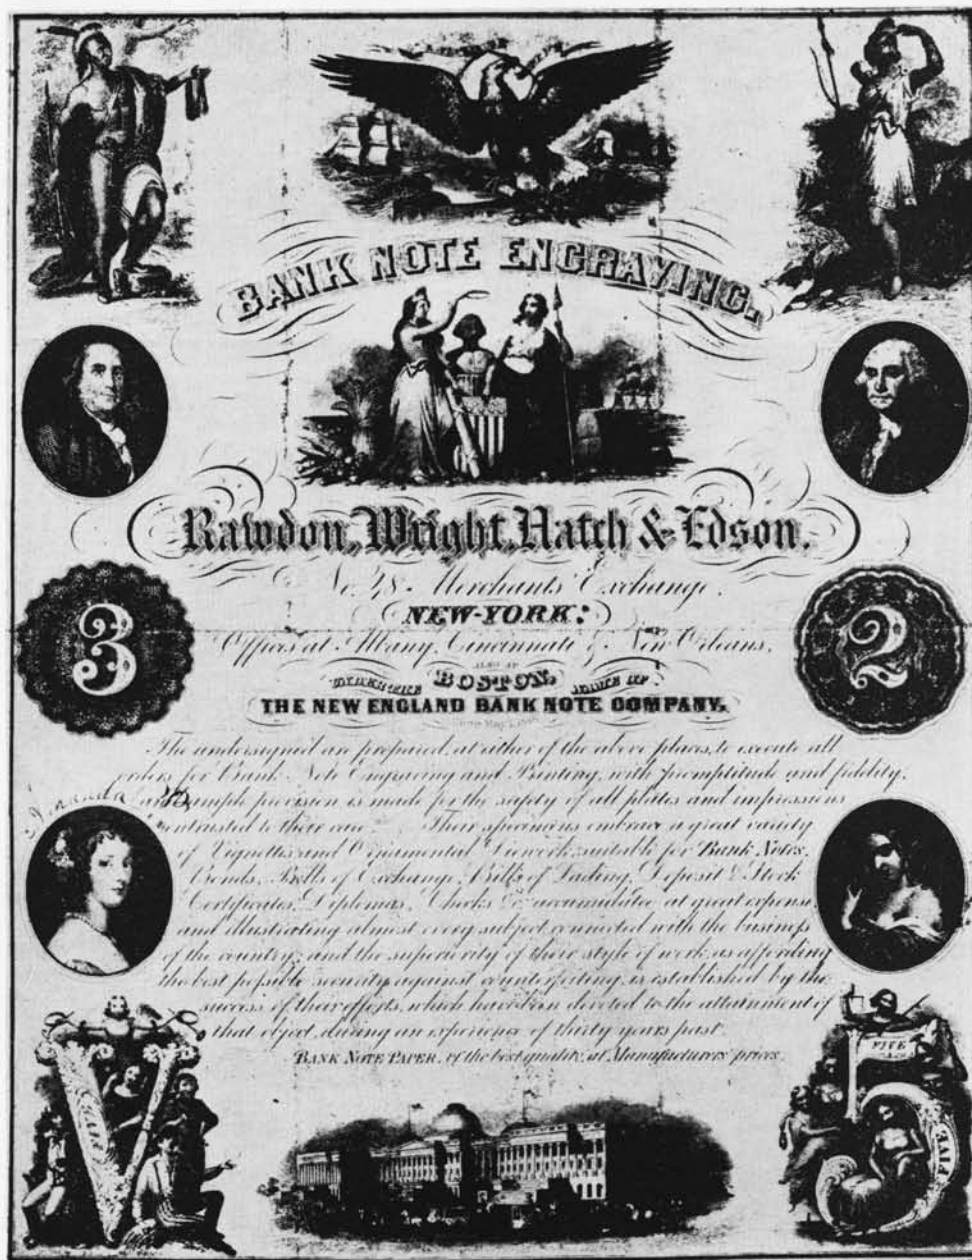 BANK NOTE ENGRAVING.
Rawdon, Wright, Hatch & Edson.
No. 48. Merchants' Exchange.
NEW-YORK:
3
2
Offices at Albany, Cincinnati & New Orleans,
ALSO AT
BOSTON,
UNDER THE NAME OF
THE NEW ENGLAND BANK NOTE COMPANY.
The undersigned are prepared, at either of the above places, to execute all
orders for Bank Note Engraving and Printing, with promptitude and fidelity,
and ample provision is made for the safety of all plates and impressions
entrusted to their care. Their specimens embrace a great variety
of Vignettes and Ornamental Diework, suitable for Bank Notes,
Bonds, Bills of Exchange, Bills of Lading, Deposit & Stock
Certificates, Diplomas, Checks &c. accumulated at great expense
and illustrating almost every subject connected with the business
of the country; and the superiority of their style of work, as affording
the best possible security against counterfeiting, is established by the
success of their efforts, which have been devoted to the attainment of
that object, during an experience of thirty years past.
BANK NOTE PAPER, of the best quality, at Manufacturers' prices.
V
FIVE
FIVE
5
FIVE